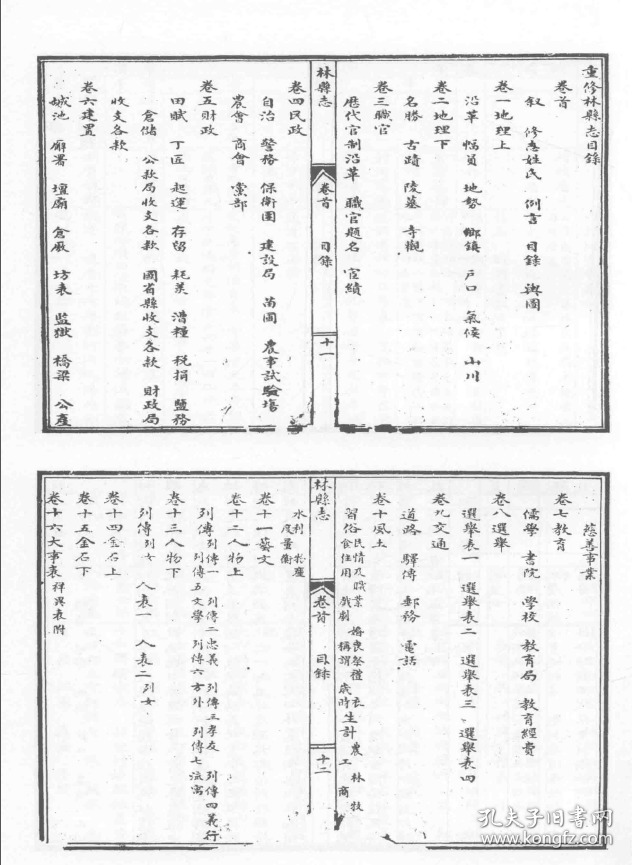 重修林縣志目錄
卷首
敘　修志姓氏　例言　目錄　輿圖
卷一地理上
沿革　幅員　地勢　鄉鎮　戶口　氣候　山川
卷二地理下
名勝　古蹟　陵墓　奇觀
卷三職官
歷代官制沿革　職官題名　宦績
林縣志
卷首　目錄
十一
卷四民政
自治　警務　保衛團　建設局　苗圃　農事試驗場
農會　商會　黨部
卷五財政
田賦　丁匠　起運　存留　耗羨　漕糧　稅捐　鹽務
倉儲　公款局收支各款　國省縣收支各款　財政局
收支各款
卷六建置
城池　廨署　壇廟　倉廒　坊表　監獄　橋梁　公產
慈善事業
卷七教育
儒學　書院　學校　教育局　教育經費
卷八選舉
選舉表一　選舉表二　選舉表三　選舉表四
卷九交通
道路　驛傳　郵務　電話
卷十風土
習俗　民情及職業　婚喪祭禮　衣食住用　戲劇　稱謂　歲時　生計　農　林　牧　工　商
水利　物產　度量衡
林縣志
卷首　目錄
十二
卷十一藝文
卷十二人物上
列傳　列傳一　列傳二忠義　列傳三孝友　列傳四義行
列傳五文學　列傳六方外　列傳七流寓
卷十三人物下
列傳列女　人表一　人表二列女
卷十四金石上
卷十五金石下
卷十六大事表　祥異表附
孔夫子旧书网
www.kongfz.com